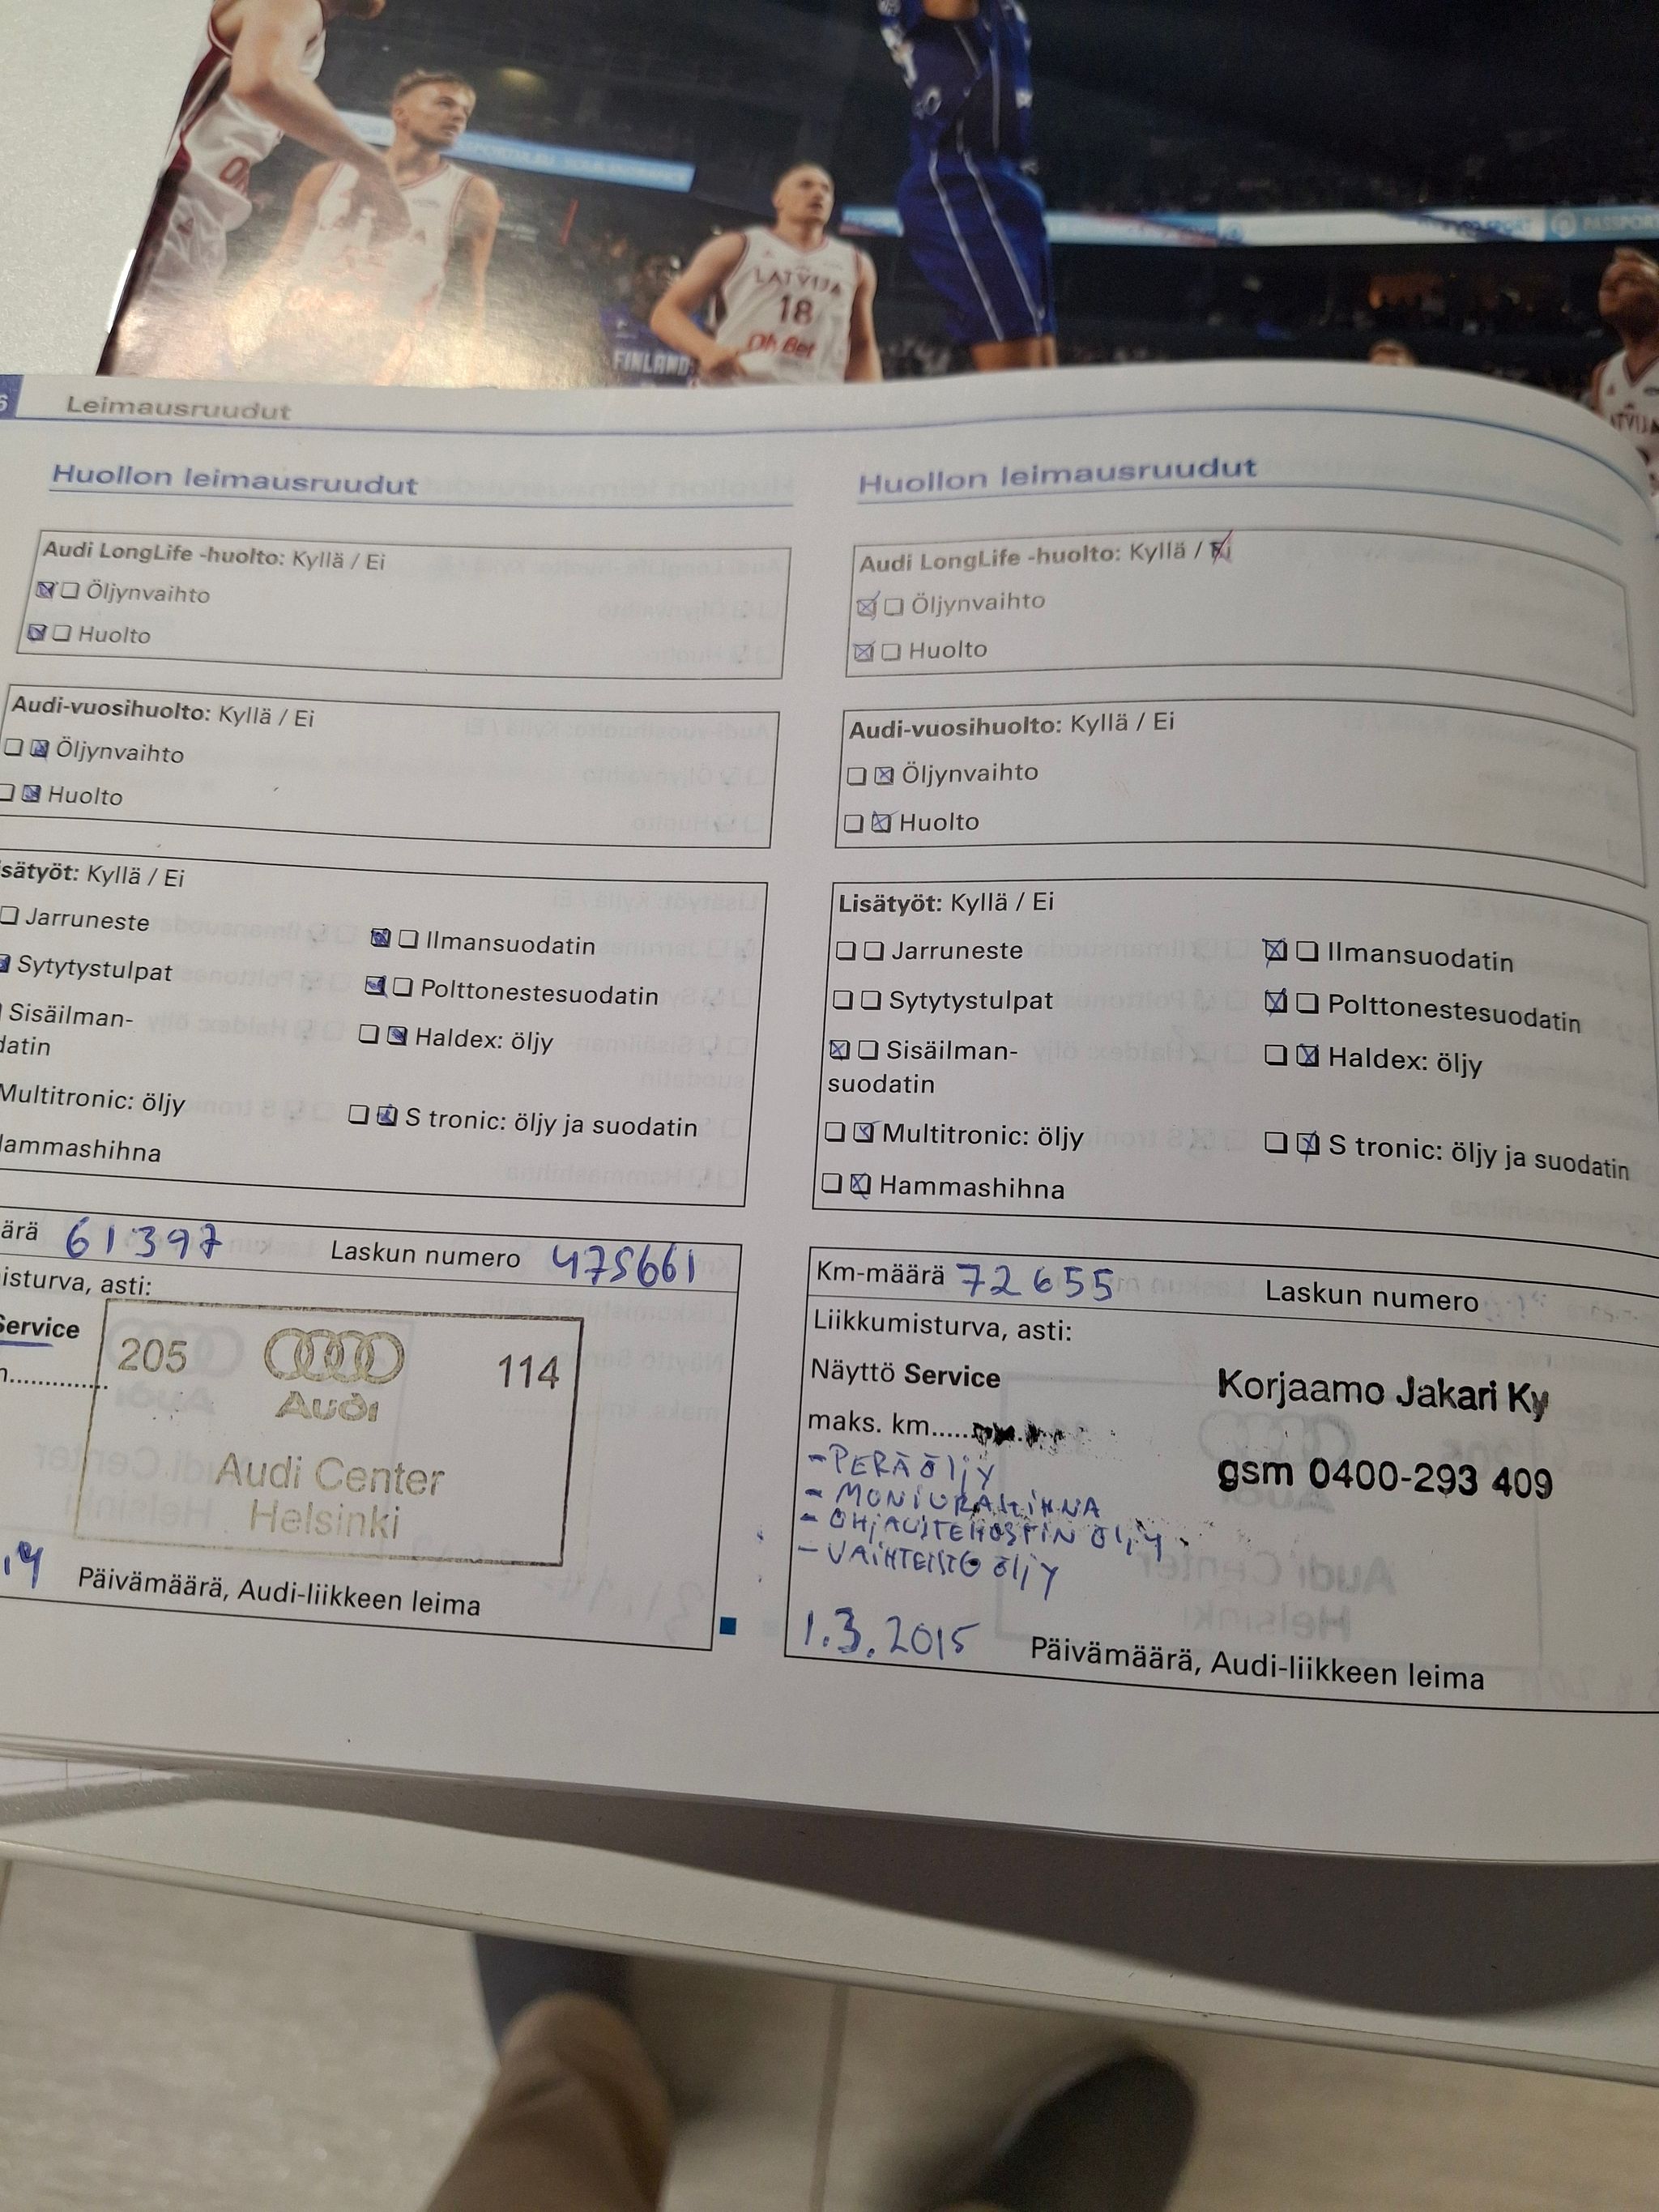 LATVIJA
18
OlyBet
FINLAND
PASSPORT
Leimausruudut
Huollon leimausruudut
Audi LongLife -huolto: Kyllä / Ei
Öljynvaihto
Huolto
Audi-vuosihuolto: Kyllä / Ei
Öljynvaihto
Huolto
isätyöt: Kyllä / Ei
Jarruneste
Ilmansuodatin
Sytytystulpat
Polttonestesuodatin
Sisäilman-
datin
Haldex: öljy
Multitronic: öljy
S tronic: öljy ja suodatin
Hammashihna
ärä 61397 Laskun numero 475661
isturva, asti:
Service
205 114
Audi
Audi Center
Helsinki
Päivämäärä, Audi-liikkeen leima
Huollon leimausruudut
Audi LongLife -huolto: Kyllä / Ei
Öljynvaihto
Huolto
Audi-vuosihuolto: Kyllä / Ei
Öljynvaihto
Huolto
Lisätyöt: Kyllä / Ei
Jarruneste
Ilmansuodatin
Sytytystulpat
Polttonestesuodatin
Sisäilman-
suodatin
Haldex: öljy
Multitronic: öljy
S tronic: öljy ja suodatin
Hammashihna
Km-määrä 72655 Laskun numero
Liikkumisturva, asti:
Näyttö Service
maks. km......
Korjaamo Jakari Ky
gsm 0400-293 409
- PERÄÖljy
- MONIURAHIHNA
- OHJAUSTEHOSTIN Öljy
- VAIHTEISTO Öljy
1.3.2015 Päivämäärä, Audi-liikkeen leima